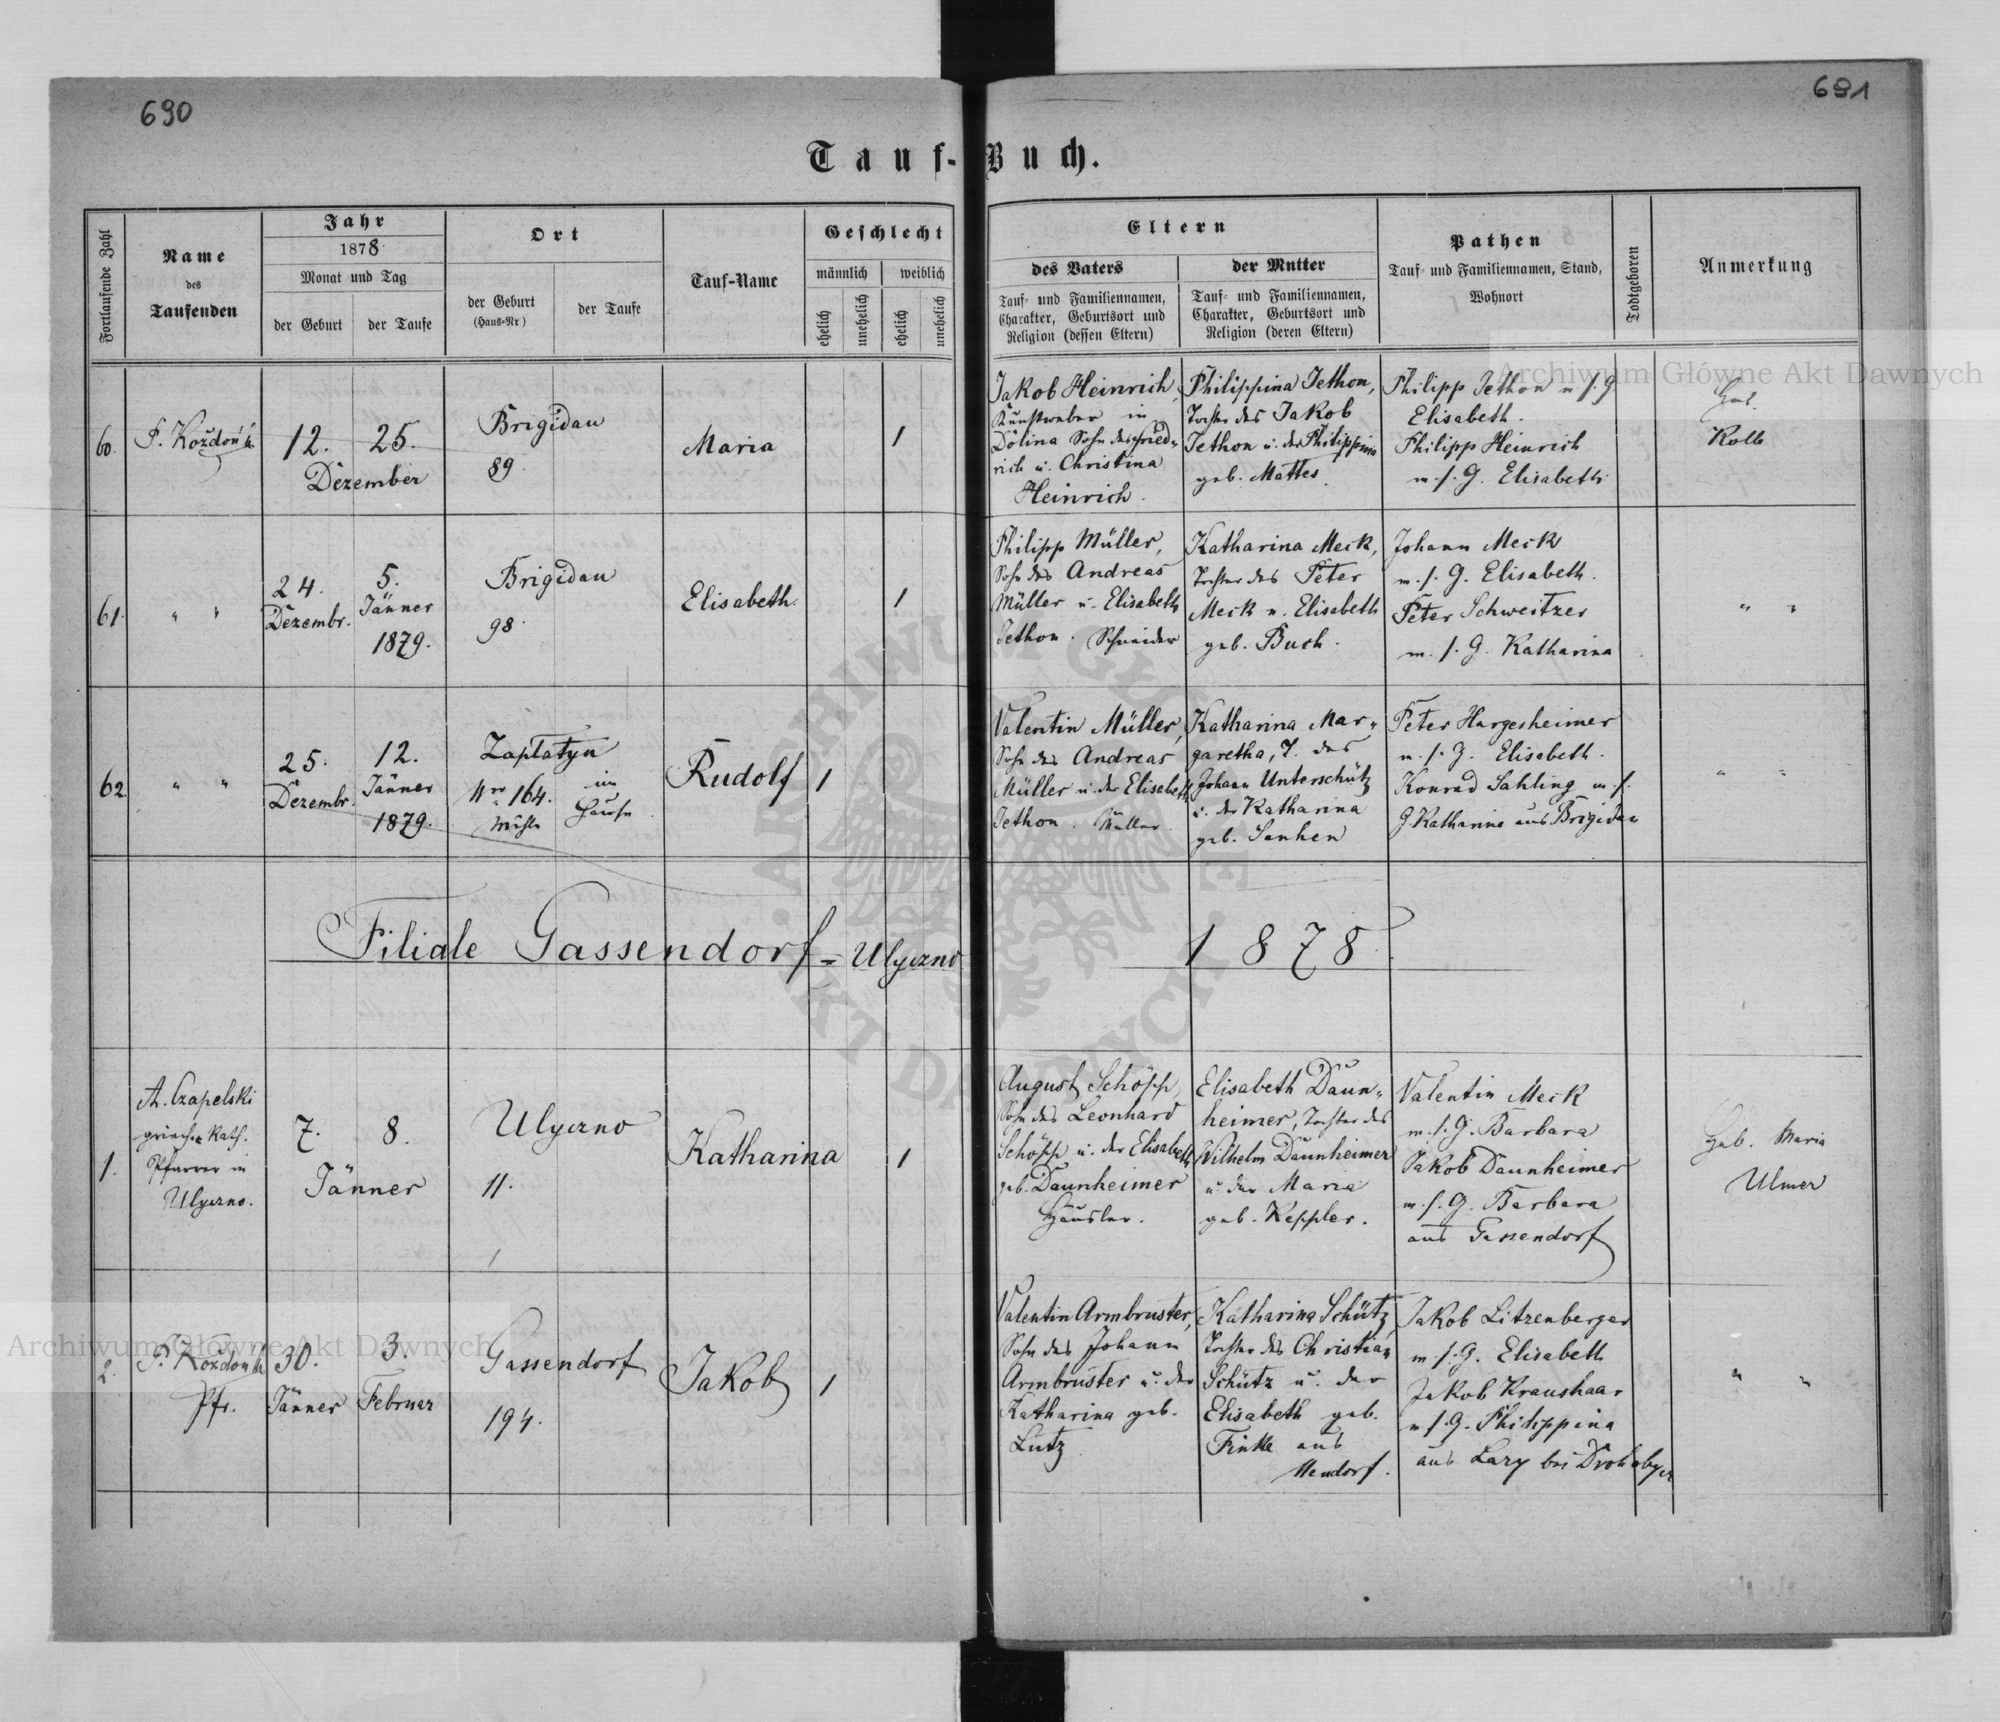 690
691
Tauf-Buch.
Fortlaufende Zahl
Name
des
Taufenden
Jahr
1878
Monat und Tag
der Geburt
der Taufe
Ort
der Geburt
(Haus-Nr)
der Taufe
Tauf-Name
Geschlecht
männlich
weiblich
ehelich
unehelich
ehelich
unehelich
Eltern
des Vaters
Tauf- und Familiennamen,
Charakter, Geburtsort und
Religion (dessen Eltern)
der Mutter
Tauf- und Familiennamen,
Charakter, Geburtsort und
Religion (deren Eltern)
Pathen
Tauf- und Familiennamen, Stand,
Wohnort
Todtgeboren
Anmerkung
60.
12.
25.
Dezember
Brigidau
89.
Maria
1
Jakob Heinrich,
Kunstweber in
Dolina Sohn des Fried-
rich u. Christina
Heinrich.
Philippina Jethon,
Tochter des Jakob
Jethon u. der Philippina
geb. Mattes.
Philipp Jethon u. s. g
Elisabeth.
Philipp Heinrich
m. s. G. Elisabeth
Heb.
Kolb
61.
" "
24.
Dezembr.
5.
Jänner
1879.
Brigidau
98.
Elisabeth.
1
Philipp Müller,
Sohn des Andreas
Müller u. Elisabeth
Jethon. Schneider
Katharina Meck,
Tochter des Peter
Meck u. Elisabeth
geb. Buch.
Johann Meck
m. s. G. Elisabeth.
Peter Schweitzer
m. s. G. Katharina
" "
62.
" "
25.
Dezembr.
12.
Jänner
1879.
Zaplatyn
Nro 164.
Mühle
im
Hause
Rudolf
1
Valentin Müller,
Sohn des Andreas
Müller u. der Elisabeth
Jethon. Müller.
Katharina Mar-
garetha, T. des
Johann Unterschütz
u. der Katharina
geb. Sanhen
Peter Hargesheimer
m. s. G. Elisabeth.
Konrad Sahling m. s.
G. Katharina aus Brigidau
" "
Filiale Gassendorf - Ulyczno
1878.
1.
A. Czapelski
griech. Kath.
Pfarrer in
Ulyczno.
7.
8.
Jänner
Ulyczno
11.
Katharina
1
August Schöpp,
Sohn des Leonhard
Schöpp u. der Elisabeth
geb. Daunheimer
Häusler.
Elisabeth Daun-
heimer, Tochter des
Wilhelm Daunheimer
u. der Maria
geb. Keppler.
Valentin Meck
m. s. G. Barbara
Jakob Daunheimer
m. s. G. Barbara
aus Gassendorf
Heb. Maria
Ulmer
2.
Pfr.
30.
Jänner
3.
Februar
Gassendorf
194.
Jakob
1
Valentin Armbruster,
Sohn des Johann
Armbruster u. der
Katharina geb.
Lutz
Katharina Schütz,
Tochter des Christian
Schütz u. der
Elisabeth geb.
Finke aus
Neudorf.
Jakob Litzenberger
m. s. G. Elisabeth
Jakob Kraushaar
m. s. G. Philippina
aus Lazy bei Drohobycz
" "
Archiwum Główne Akt Dawnych
Archiwum Główne Akt Dawnych
ARCHIWUM GŁÓWNE AKT DAWNYCH